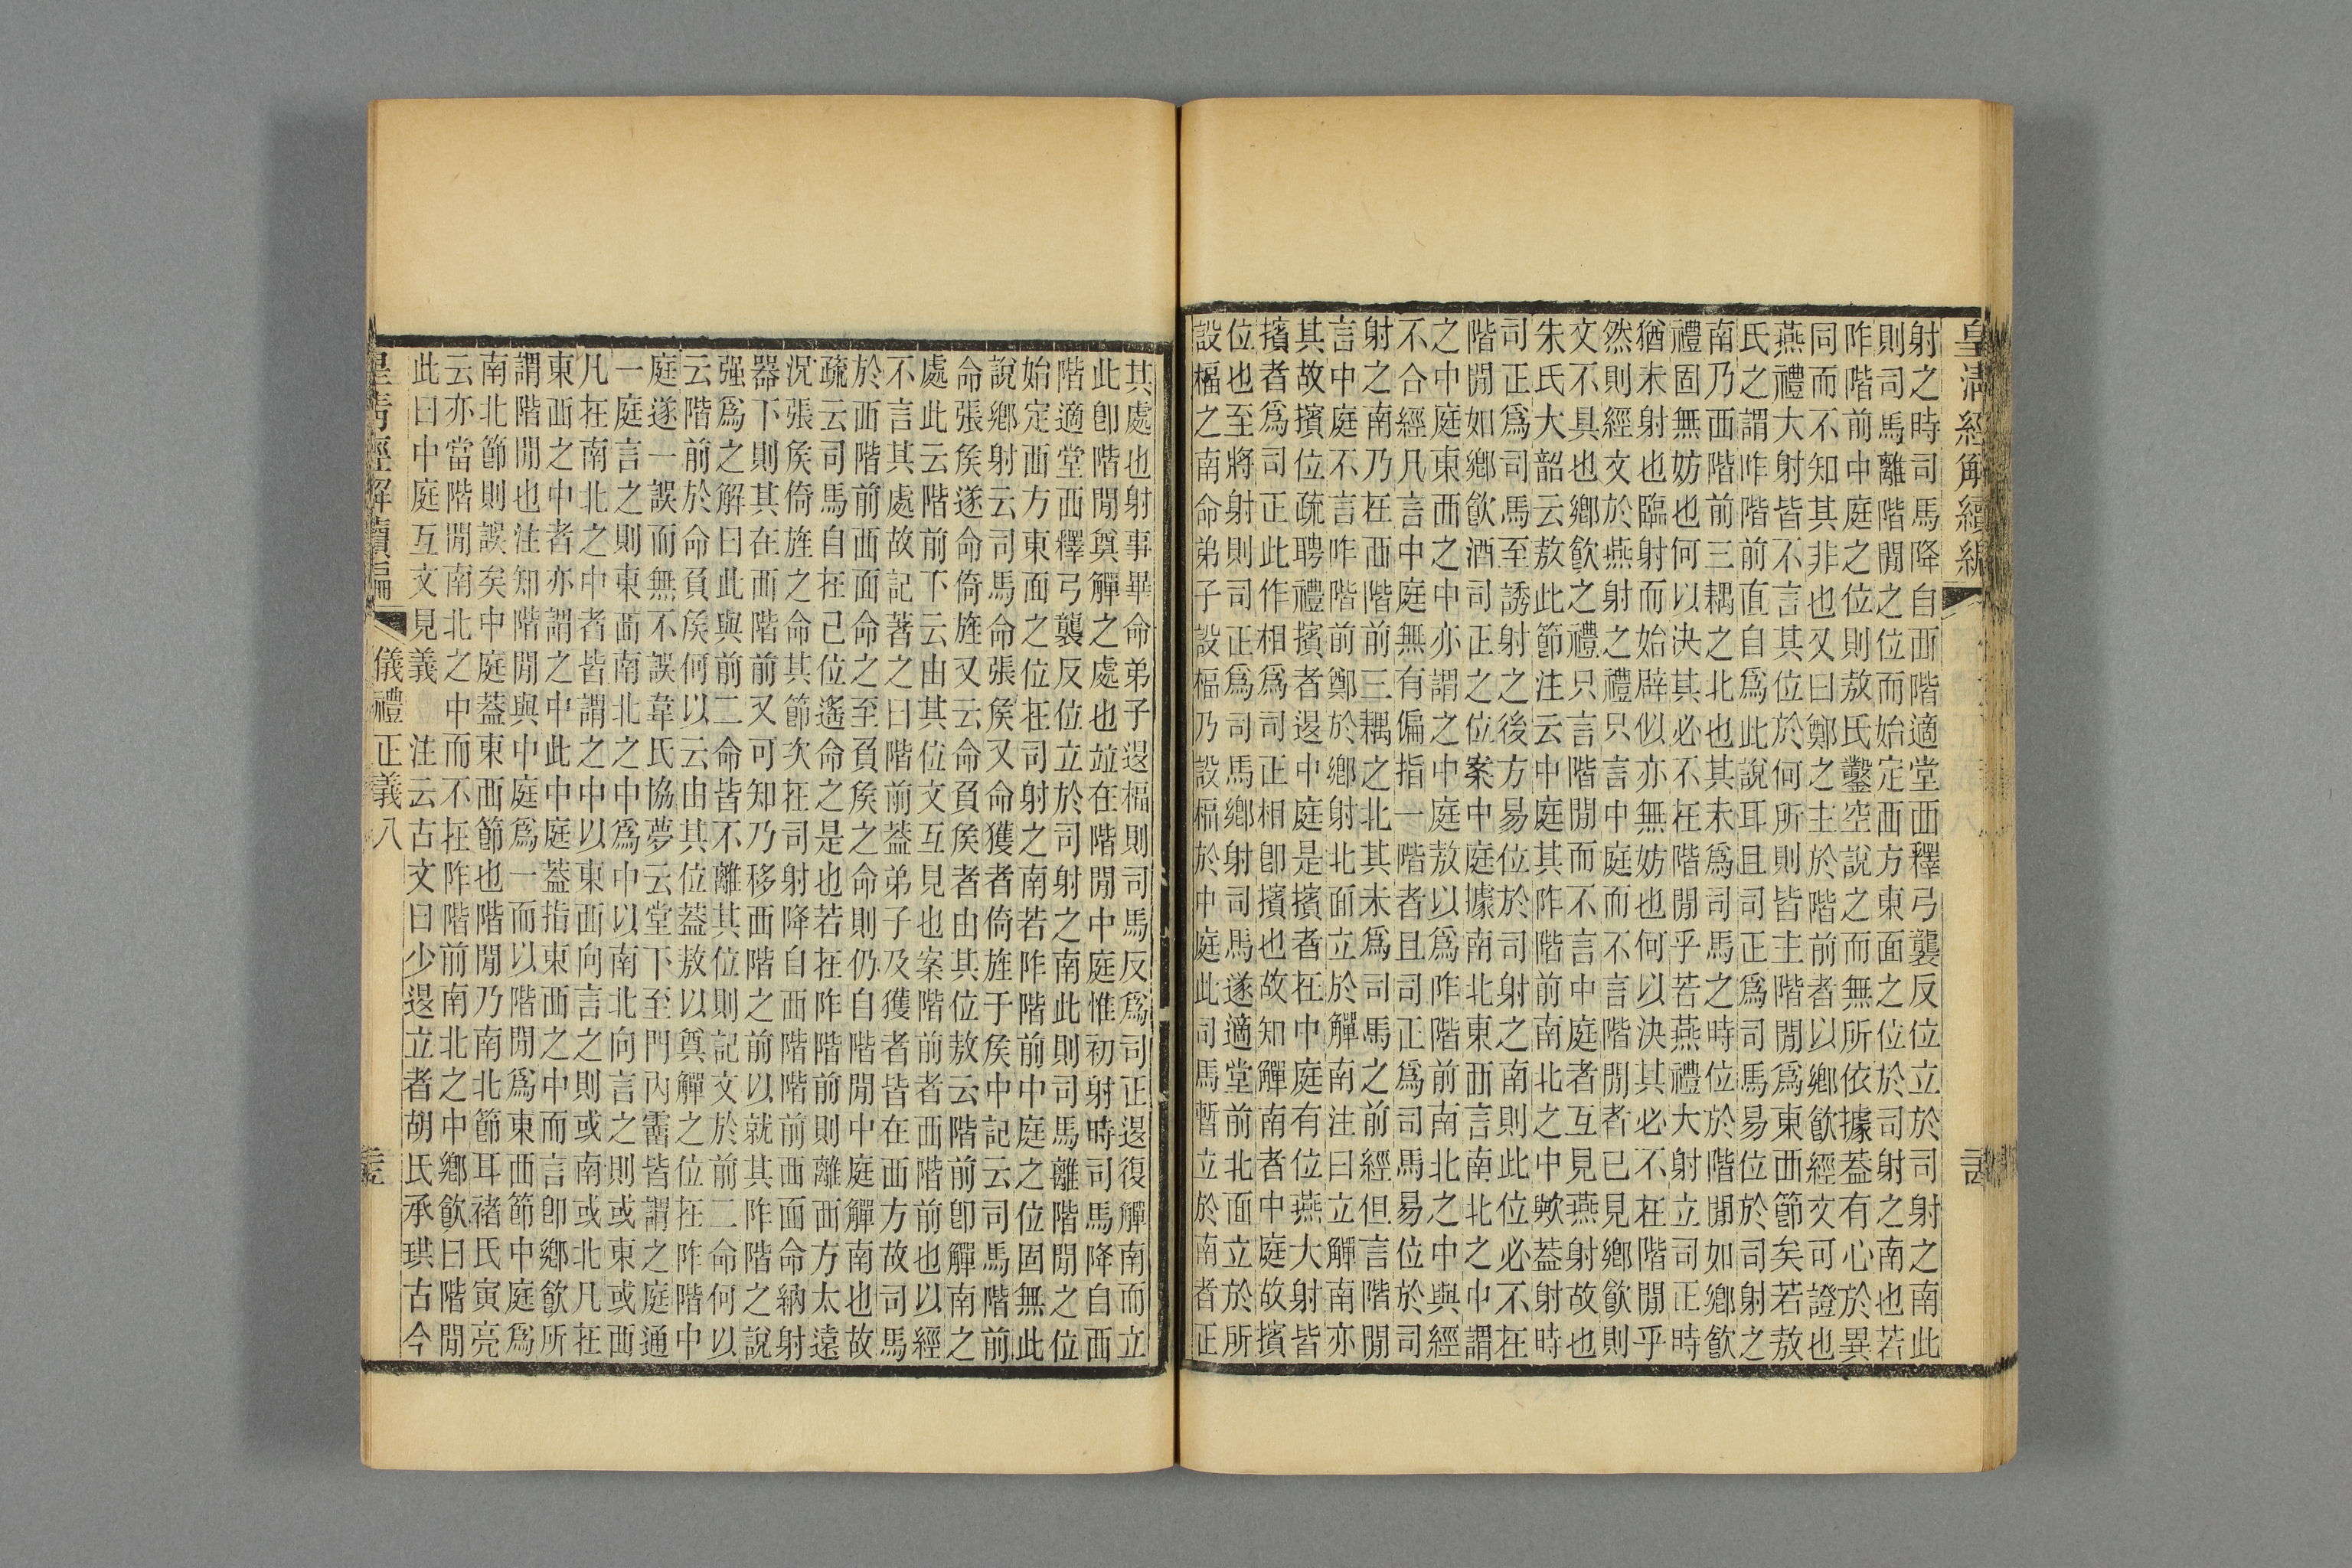 皇清經解續編
射之時司馬降自西階適堂西釋弓襲反位立於司射之南此
則司馬離階閒之位而始定西方東面之位於司射之南也若
阼階前中庭之位則敖氏鑿空說之而無所依據蓋有心於異
同而不知其非也又曰鄭之主於階前者以鄉飲經文可證也
燕禮大射皆不言其位於何所則皆主階閒爲東西節矣若敖
氏之謂阼階前直自爲此說耳且司正爲司馬易位於司射之
南乃西階前三耦之北也其未爲司馬之時位於階閒如鄉飲
禮固無妨也何以決其必不在階閒乎若燕禮大射立司正時
猶未射也臨射而始辟似亦無妨也何以決其必不在階閒乎
然則經文於燕射之禮只言中庭而不言階閒者已見鄉飲則
文不具也鄉飲之禮只言階閒而不言中庭者互見燕射故也
朱氏大韶云敖此節注云中庭其阼階前南北之中歟蓋射時
司正爲司馬至誘射之後方易位於司射之南則此位必不在
階閒如鄉飲酒司正之位案中庭據南北東西言南北之中謂
之中庭東西之中亦謂之中庭敖以爲阼階前南北之中與經
不合經凡言中庭無有偏指一階者且司正爲司馬易位於司
射之南乃在西階前三耦之北其未爲司馬之前經但言階閒
言中庭不言阼階前鄭於鄉射北面立於觶南注曰立觶南亦
其故擯位疏聘禮擯者退中庭是擯者在中庭有位燕大射皆
擯者爲司正此作相爲司正相卽擯也故知觶南者中庭故擯
位也至將射則司正爲司馬鄉射司馬遂適堂前北面立於所
設楅之南命弟子設楅乃設楅於中庭此司馬暫立於南者正
其處也射事畢命弟子退楅則司馬反爲司正退復觶南而立
此卽階閒奠觶之處也竝在階閒中庭惟初射時司馬降自西
階適堂西釋弓襲反位立於司射之南此則司馬離階閒之位
始定西方東面之位在司射之南若阼階前中庭之位固無此
說鄉射云司馬命張侯又命獲者倚旌于侯中記云司馬階前
命張侯遂命倚旌又云命負侯者由其位敖云階前卽觶南之
處此云階前下云由其位文互見也案階前者西階前也以經
不言其處故記著之曰階前蓋弟子及獲者皆在西方故司馬
於西階前西面命之至負侯之命則仍自階閒中庭觶南也故
疏云司馬自在己位遙命之是也若在阼階前則離西方太遠
況張侯倚旌之命其節次在司射降自西階階前西面命納射
器下則其在西階前又可知乃移西階之前以就其阼階之說
强爲之解曰此與前二命皆不離其位則記文於前二命何以
云階前於命負侯何以云由其位蓋敖以奠觶之位在阼階中
庭遂一誤而無不誤韋氏協夢云堂下至門內霤皆謂之庭通
一庭言之則東西南北之中爲中以南北向言之則或東或西
凡在南北之中者皆謂之中以東西向言之則或南或北凡在
東西之中者亦謂之中此中庭蓋指東西之中而言卽鄉飲所
謂階閒也注知階閒與中庭爲一而以階閒爲東西節中庭爲
南北節則誤矣中庭蓋東西節也階閒乃南北節耳褚氏寅亮
云亦當階閒南北之中而不在阼階前南北之中鄉飲曰階閒
此曰中庭互文見義　注云古文曰少退立者胡氏承珙古今
皇清經解續編　儀禮正義八